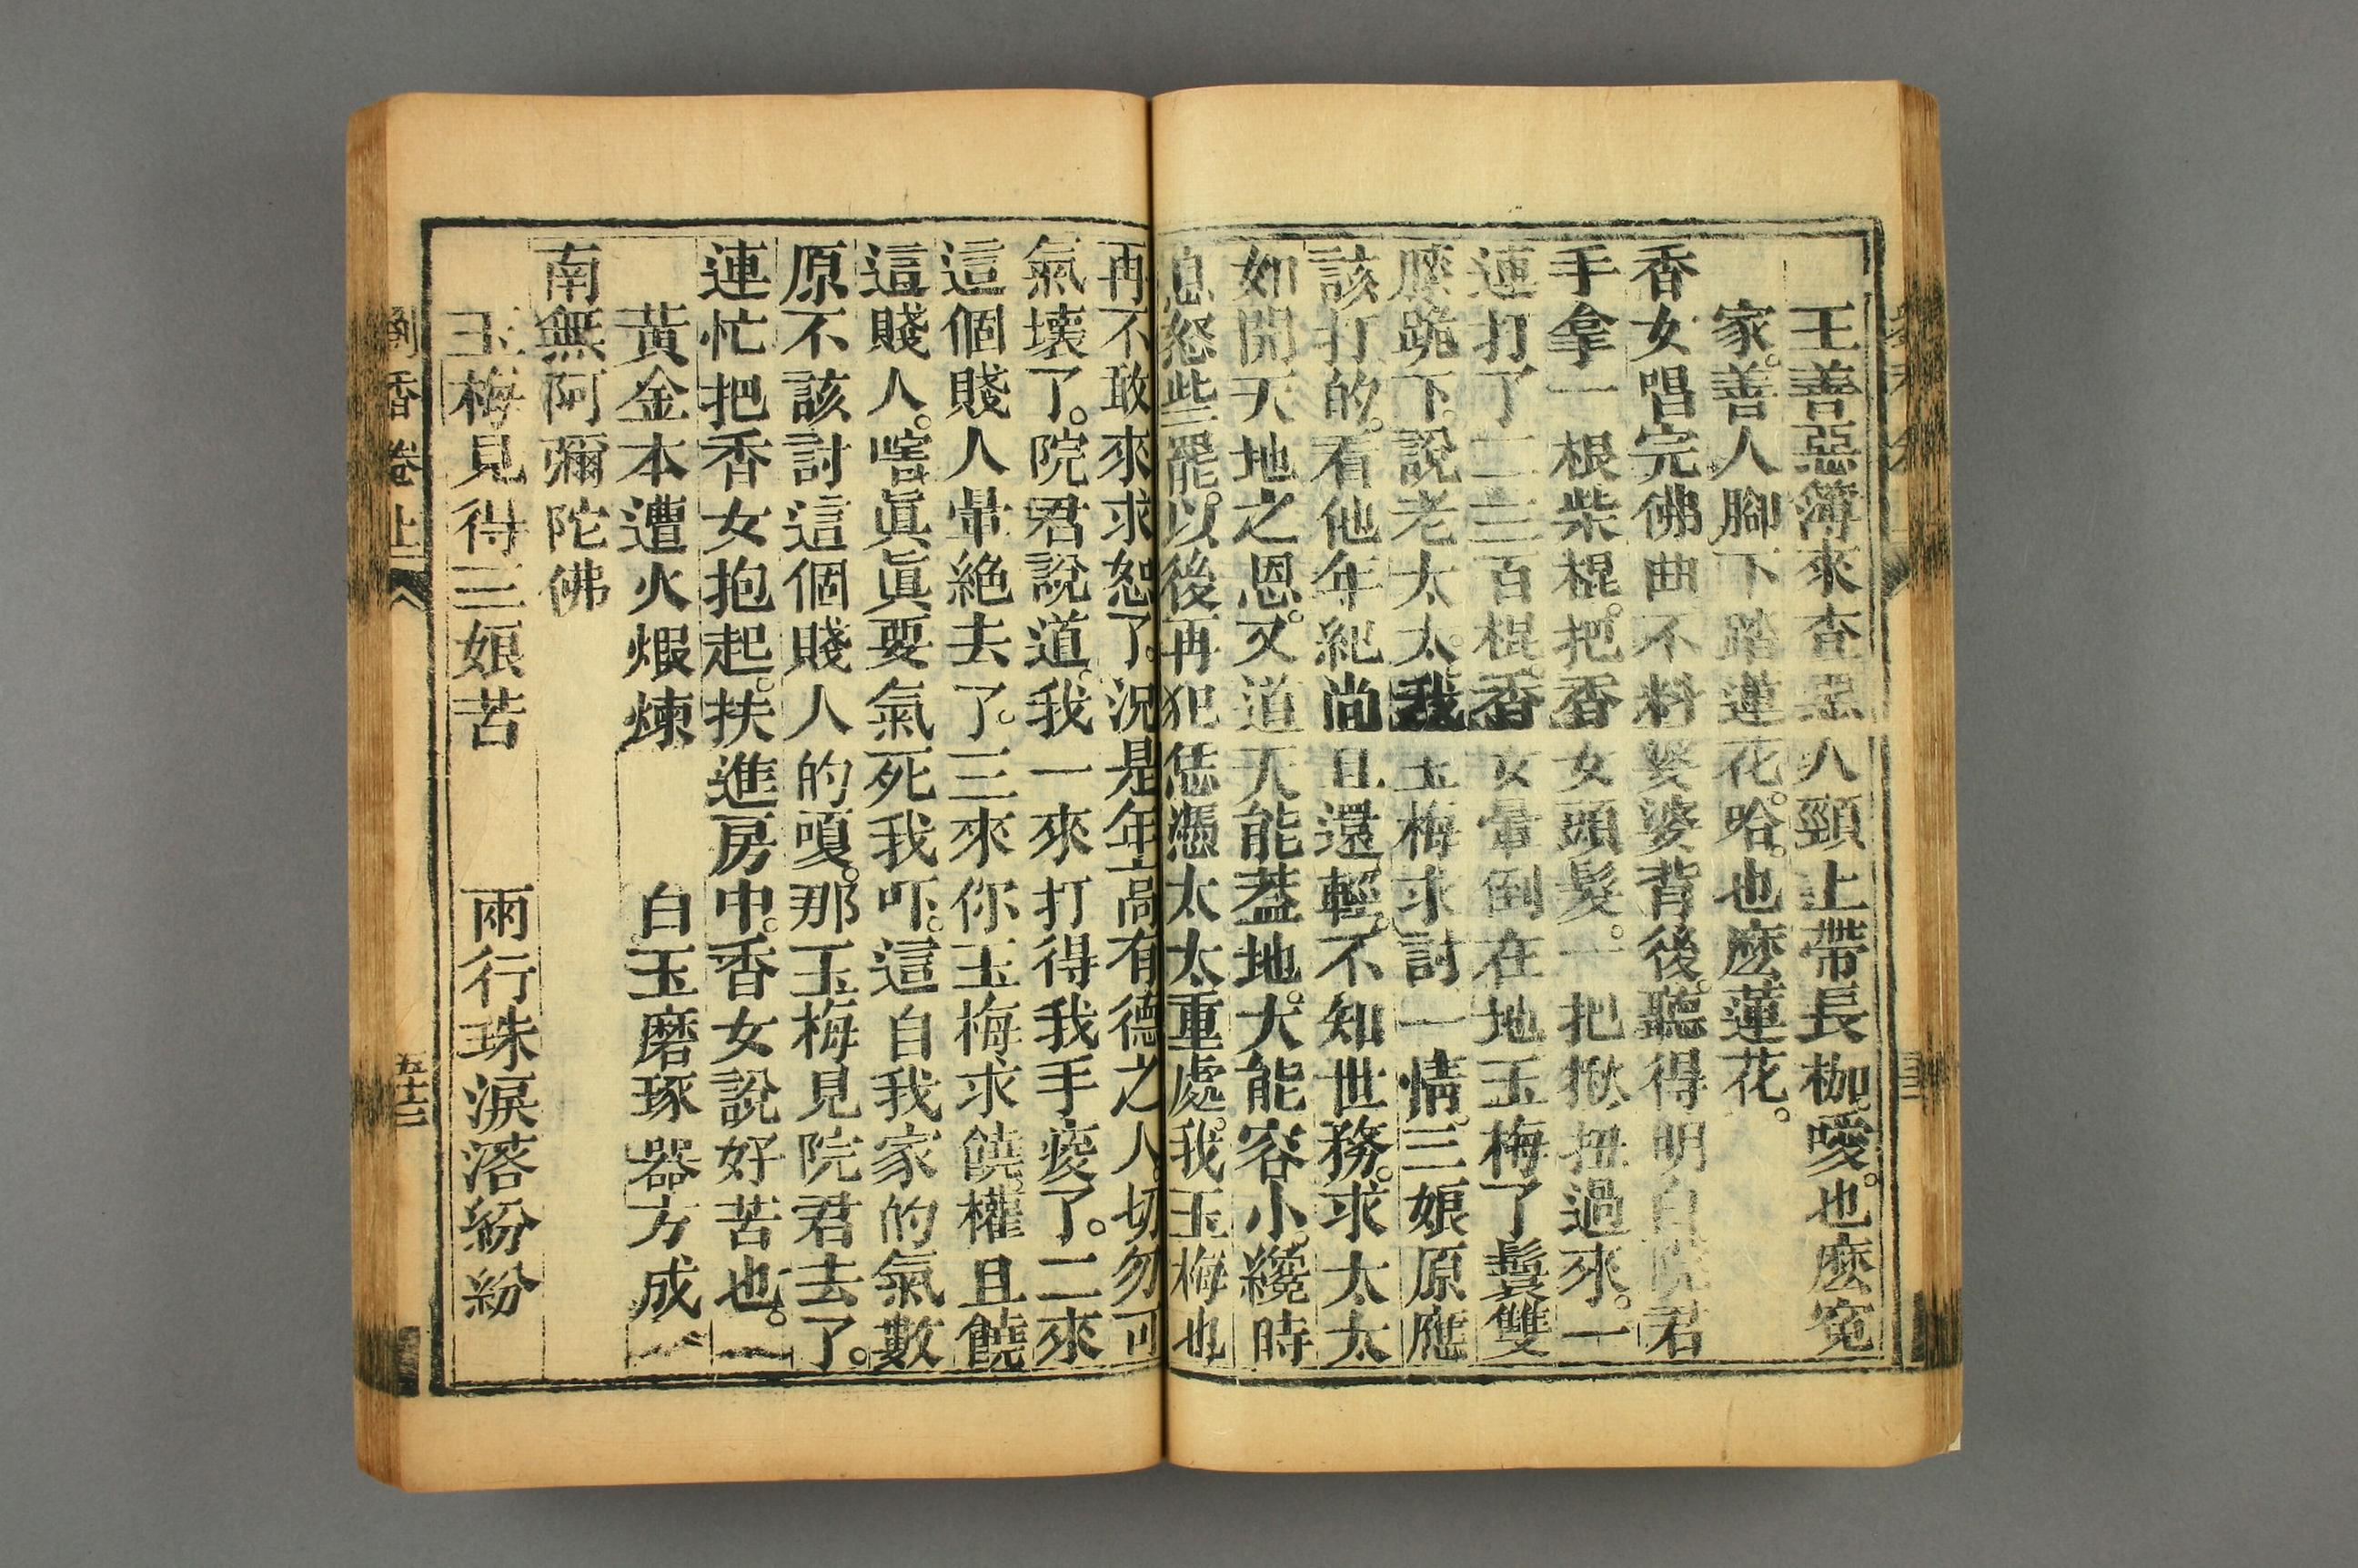 王善惡簿來查惡人頸上帶長枷。噯。也麽寃
家。善人腳下踏蓮花。哈。也麽蓮花。
香女唱完佛曲不料婆婆背後。聽得明白院君
手拿一根柴棍。把香女頭髮。一把揪扭過來。一
連打了二三百棍。香女暈倒在地玉梅了鬟雙
膝跪下。說老太太。我玉梅求討一情。三娘原應
該打的。看他年紀尚且還輕。不知世務。求太太
如開天地之恩。又道天能蓋地。大能容小。纔時
息怒些罷。以後再犯恁憑太太重處。我玉梅也
再不敢來求恕了。況是年高有德之人。切勿可
氣壞了。院君說道。我一來打得我手痠了。二來
這個賤人暈絶去了。三來你玉梅求饒。權且饒
這賤人。嗐眞眞要氣死我吓。這自我家的氣數
原不該討這個賤人的嗄。那玉梅見院君去了。
連忙把香女抱起。扶進房中。香女說好苦也。
黃金本遭火煆煉　白玉磨琢器方成
南無阿彌陀佛
玉梅見得三娘苦　兩行珠淚落紛紛
劉香卷上
五十三